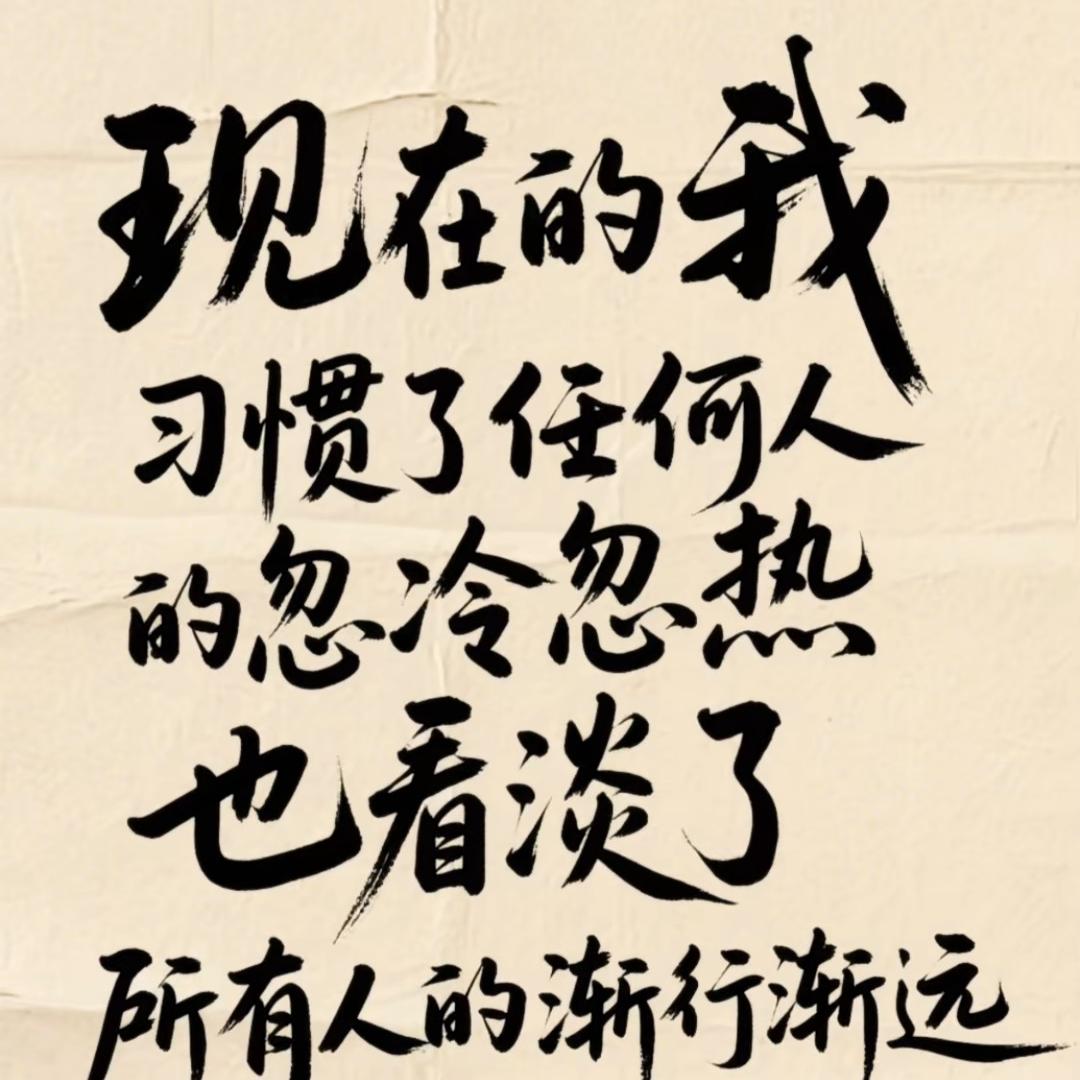 现在的我
习惯了任何人
的忽冷忽热
也看淡了
所有人的渐行渐远